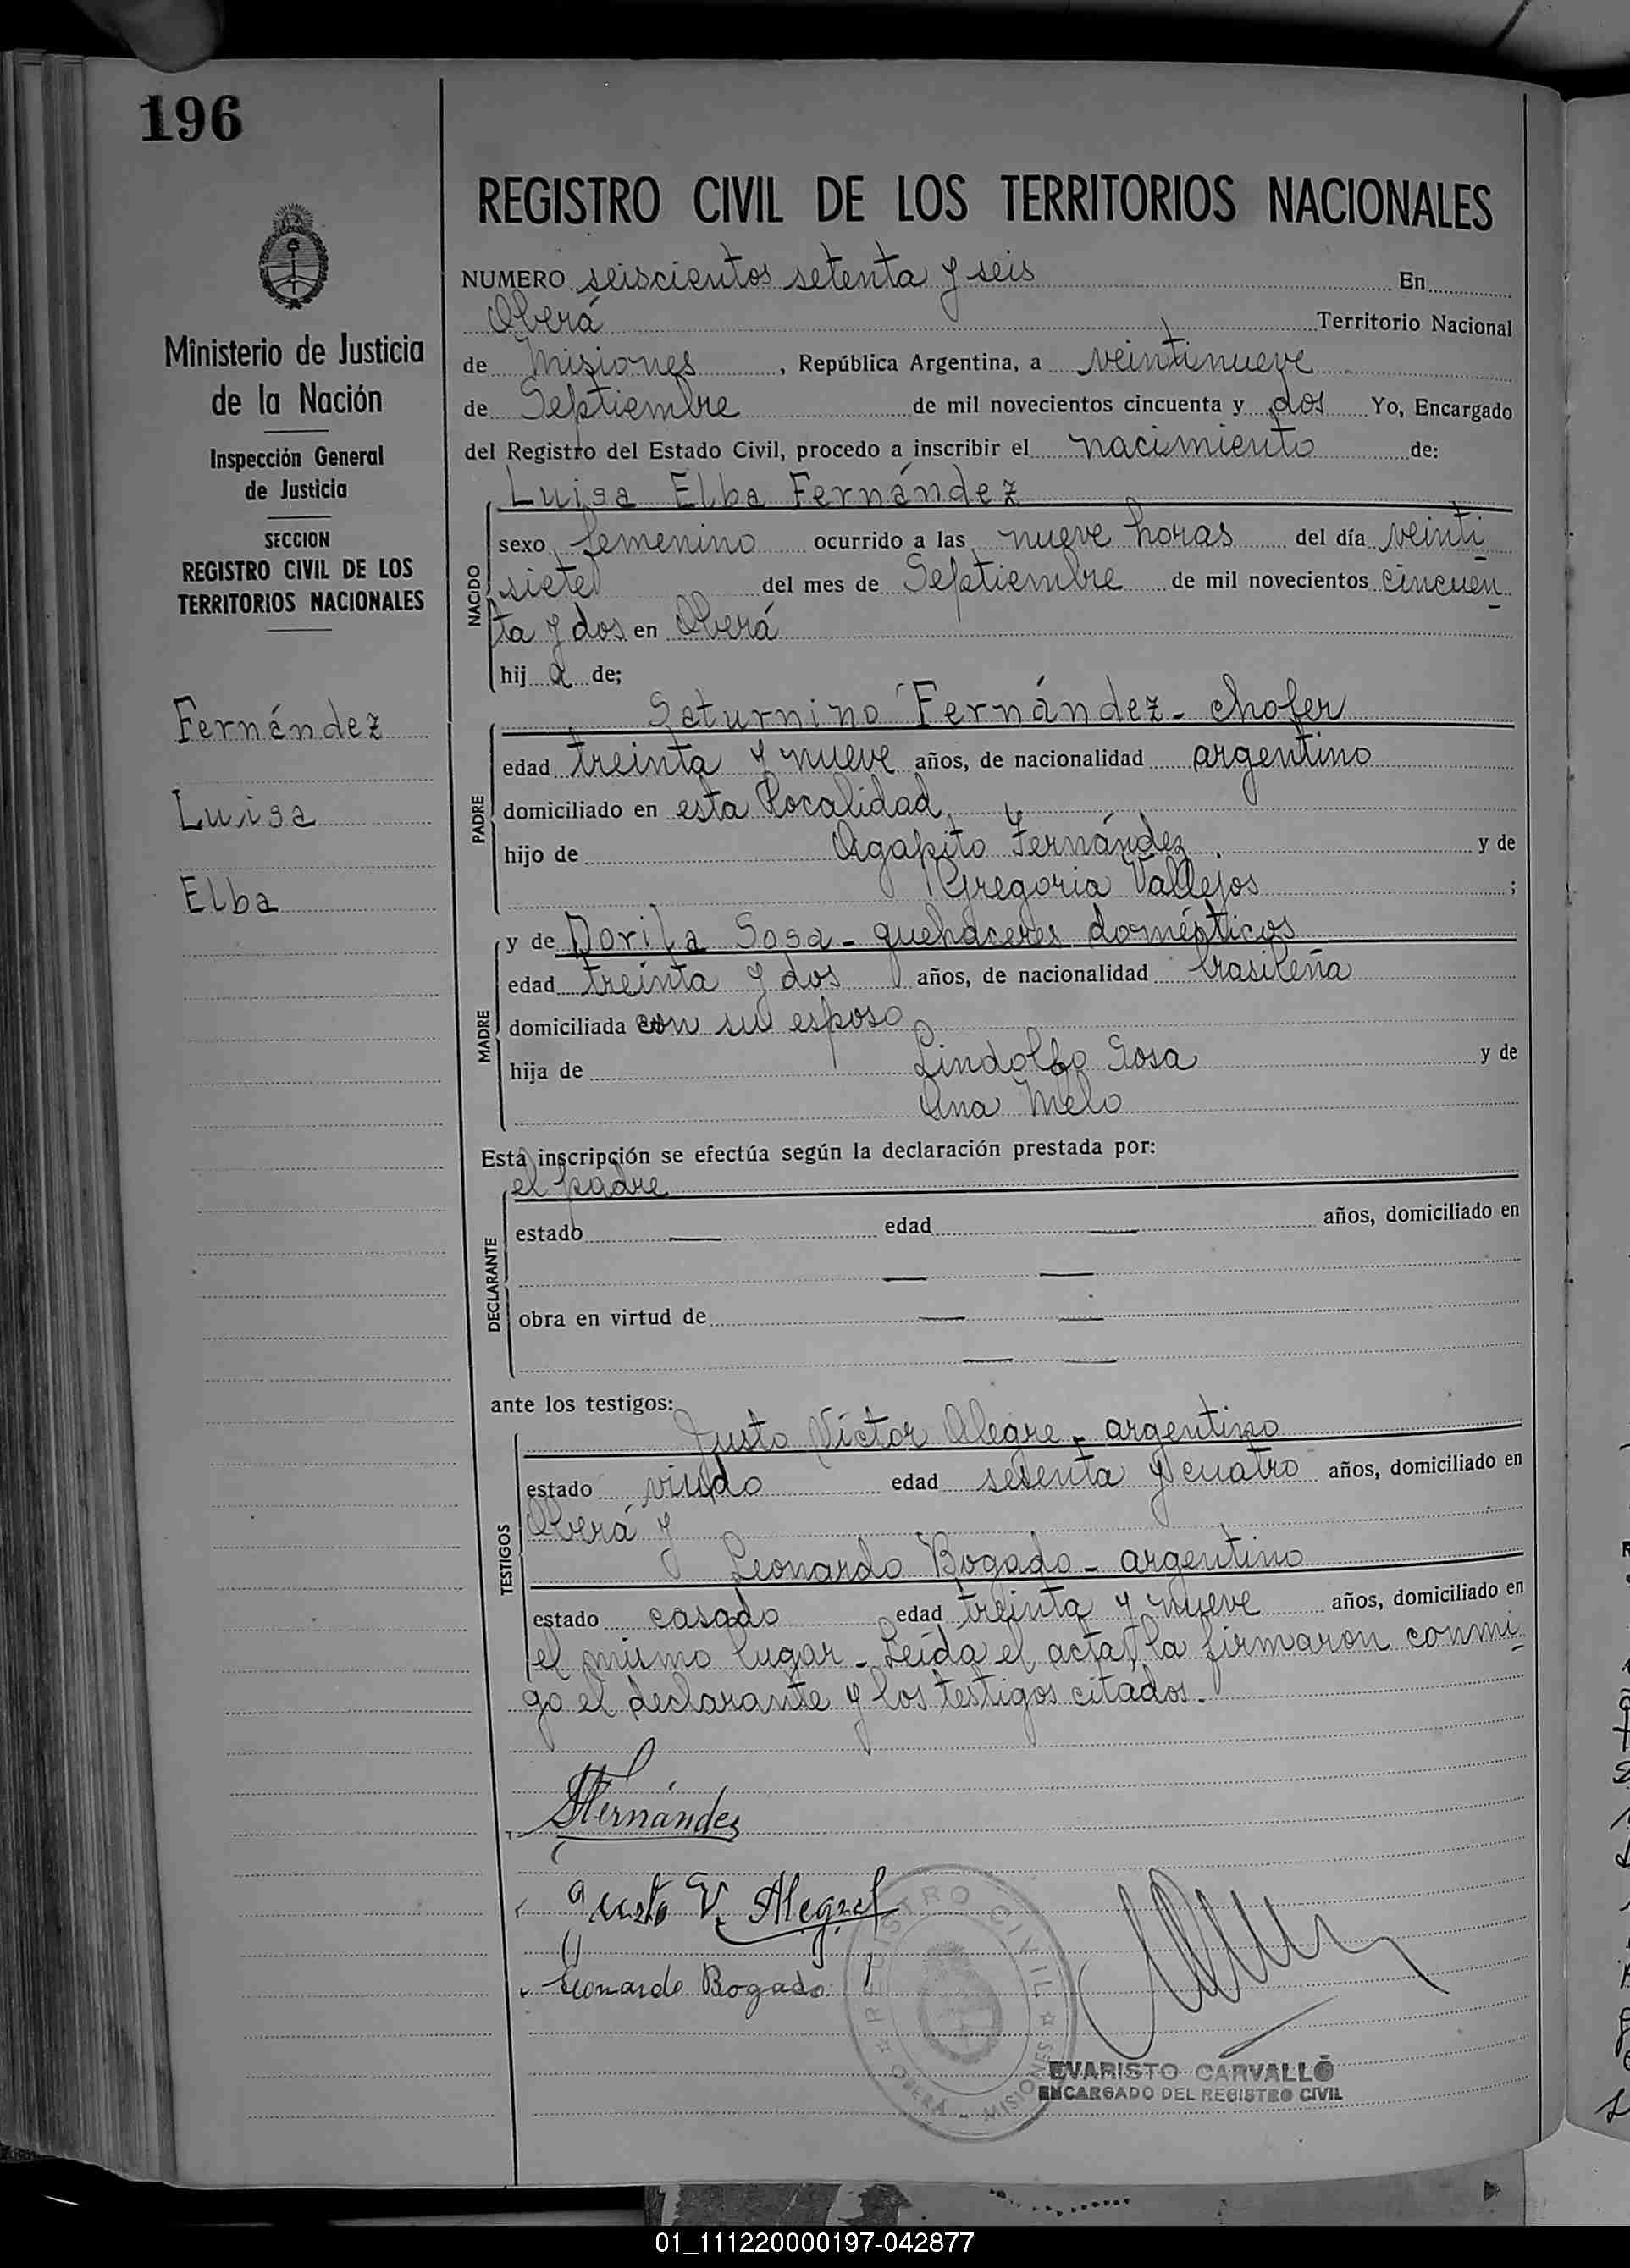 196
Ministerio de Justicia
de la Nación
Inspección General
de Justicia
SECCION
REGISTRO CIVIL DE LOS
TERRITORIOS NACIONALES
Fernández
Luisa
Elba
REGISTRO CIVIL DE LOS TERRITORIOS NACIONALES
NUMERO seiscientos setenta y seis En
Oberá Territorio Nacional
de Misiones, República Argentina, a veintinueve
de Septiembre de mil novecientos cincuenta y dos Yo, Encargado
del Registro del Estado Civil, procedo a inscribir el nacimiento de:
Luisa Elba Fernández
NACIDO
sexo femenino ocurrido a las nueve horas del día veinti
siete del mes de Septiembre de mil novecientos cincuen
ta y dos en Oberá
hija de;
Saturnino Fernández - chofer
PADRE
edad treinta y nueve años, de nacionalidad argentino
domiciliado en esta localidad
hijo de Agapito Fernández y de
Gregoria Vallejos ;
MADRE
y de Dorila Sosa - quehaceres domésticos
edad treinta y dos años, de nacionalidad brasileña
domiciliada con su esposo
hija de Lindolfo Sosa y de
Ana Melo
Esta inscripción se efectúa según la declaración prestada por:
el padre
DECLARANTE
estado — edad — años, domiciliado en
— —
obra en virtud de — —
— —
ante los testigos:
Justo Víctor Alegre - argentino
TESTIGOS
estado viudo edad sesenta y cuatro años, domiciliado en
Oberá y
Leonardo Bogado - argentino
estado casado edad treinta y nueve años, domiciliado en
el mismo lugar - Leída el acta, la firmaron conmi
go el declarante y los testigos citados.
SFernández
Justo V. Alegre
Leonardo Bogado
REGISTRO CIVIL
OBERÁ - MISIONES
EVARISTO CARVALLO
ENCARGADO DEL REGISTRO CIVIL
01_111220000197-042877